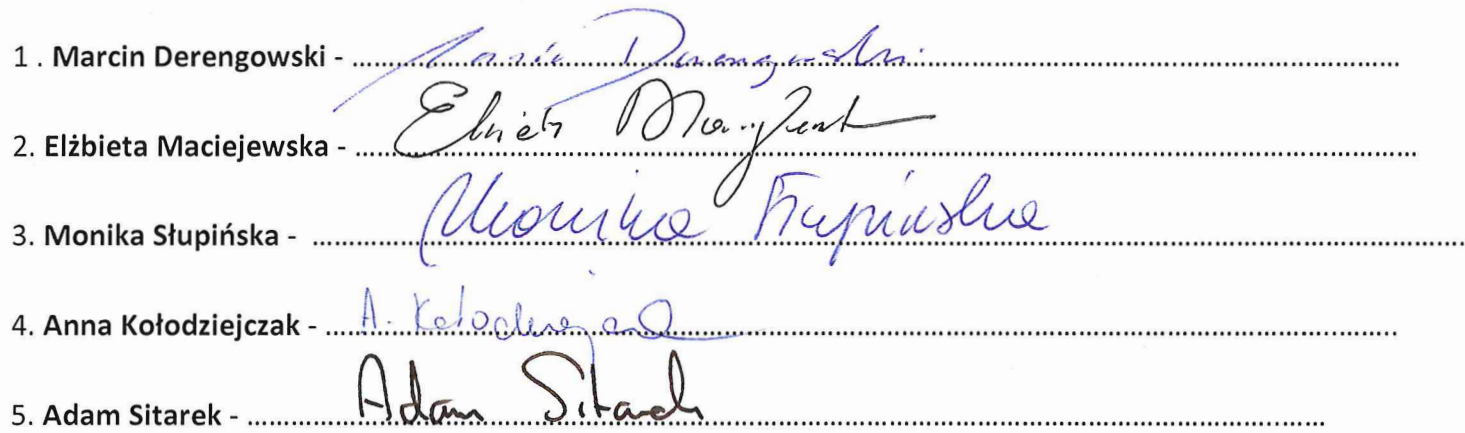 1 . Marcin Derengowski - Marcin Derengowski
2. Elżbieta Maciejewska - Elżbieta
3. Monika Słupińska - Monika Słupińska
4. Anna Kołodziejczak - A. Kołodziejczak
5. Adam Sitarek - Adam Sitarek